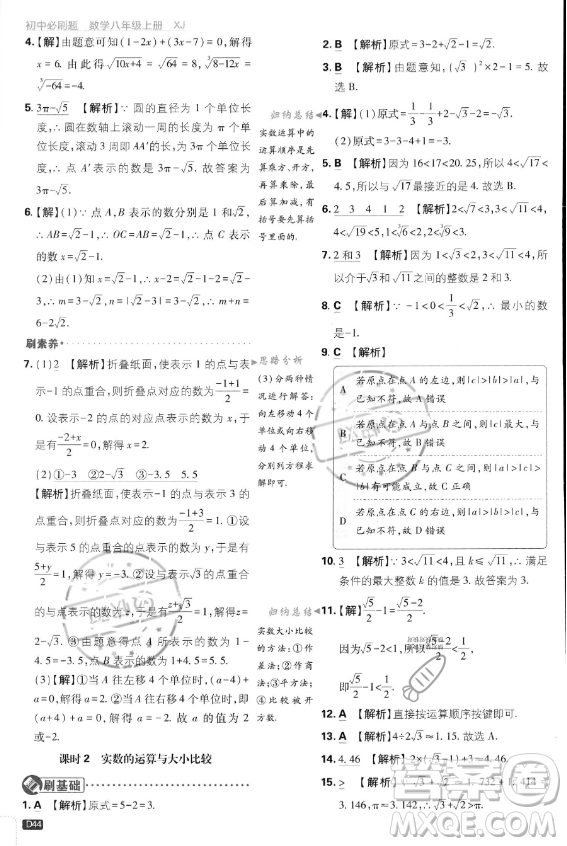 初中必刷题 数学八年级上册 XJ
4.【解】由题意可知(1-2x)+(3x-7)=0,解得
x=6. 由此得√(10x+4)=√64=8,∛(8-12x)=
∛-64=-4.
5. 3π-√5 【解析】∵ 圆的直径为 1 个单位长
度,∴ 圆在数轴上滚动一周的长度为 π 个单
位长度,滚动 3 周即 AA′的长为 3π 个单位长
度,∴ 点 A′表示的数是 3π-√5. 故答案为
3π-√5.
6.【解】(1)∵ 点 A,B 表示的数分别是 1 和√2,
∴ AB=√2-1,∴ OC=AB=√2-1,∴ 点 C 表示
的数 x=√2-1.
(2)由(1)知,x=√2-1. ∵ 1<√2<2,
∴ m=3-√2,n=3,∴ m+n=3-√2+3=
6-√2.
刷素养
7.(1)2 【解析】折叠纸面,使表示 1 的点与表
示-1 的点重合,则折叠点对应的数为(-1+1)/2=
0. 设表示-2 的点的对应点表示的数为 x,于
是有(-2+x)/2=0,解得 x=2.
(2)①-3 ②2-√3 ③-1.5 3.5
【解析】折叠纸面,使表示-1 的点与表示 3 的
点重合,则折叠点对应的数为(-1+3)/2=1. ①设
表示 5 的点的对应点表示的数为 y,于是有
(5+y)/2=1,解得 y=-3. ②设表示√3的点的对应
(3)①当点 A 往左移 4 个单位时,(a-4)+
a=0,解得 a=2. ②当点 A 往右移 4 个单位时,
(a+4)+a=0,解得 a=-2. 综上所述,a 的值为
2 或-2.
课时 2 实数的运算与大小比较
刷基础
1. A 【解析】原式=5-2=3.
D44
归纳总结
实数运算中的
运算顺序是先
算乘方、开方,
再算乘除,最
后算加减,有
括号要先算括
号里面的.
思路分析
(3)分两种情
况讨论:①当
向左移动 4 个
单位或向右移
动 4 个单位,
分别求解.
归纳总结
实数大小比较
的方法:①作
差法;②作商
法;③平方法;
④比较被开方
数大小.
2. B 【解析】原式=3-2+√2-1=√2.
3. B 【解析】由题意知,(√3)²×2-1=5. 故
选 B.
4.【解】(1)原式=1/3-1/3+2-√3-2=-√3.
5. B 【解析】因为 16<17<20.25,所以 4<√17<
4.5,所以与√17最接近的是 4. 故选 B.
6. 2 3 4 1 2 【解析】2<√7<3,3<√11<4,
4<√19<5,1<∛6<2,2<∛9<3.
7. 2 和 3 【解析】因为 1<√3<2,3<√11<4,所
以介于√3和√11之间的整数是 2 和 3.
8. C 【解析】∵ -1<0<1/3<√2,∴ 最小的数
是-1.
9. C 【解析】
A 若原点在点 A 的左边,则|c|>|b|>|a|,与
已知不符,故 A 错误
B 若原点在点 A 与点 B 之间,则|c|最大,与
已知不符,故 B 错误
C
|b|有可能成立,故 C 正确
D 若原点在点 C 的右边,则|a|>|b|>|c|,与
已知不符,故 D 错误
10. 3 【解析】∵ 3<√11<4,且 k≤√11,∴ 满足
条件的最大整数 k 的值是 3. 故答案为 3.
11.【解】√5/2-1=(√5-2)/2.
因为√5-2<1,所以
即√5/2-1<
12. A 【解析】直接按运算顺序按键即可.
13. A 【解析】4÷2√3≈1.15. 故选 A.
14. 4.46 【解析】2×(√3+1/2)-1≈4.46.
15. > 【解析】
3.146,π≈3.142,∴√3+√2>π.